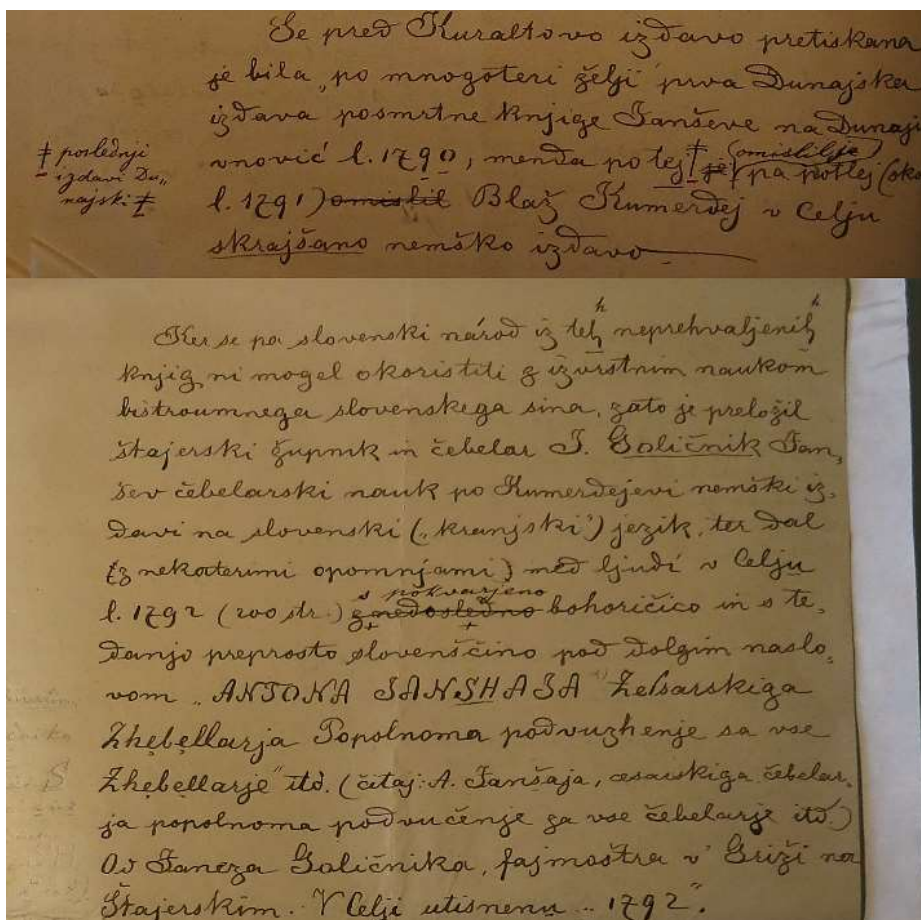 Še pred Kuraltovo izdavo pretiskana
je bila „po mnogoteri želji“ prva Dunajska
izdava posmrtne knjige Janševe na Dunaji
vnovič l. 1790, menda po tej ‡ je (omislil je)
‡ poslednji
izdavi Du„
najski ‡
pa potlej (oko
l. 1791) omislil Blaž Kumerdej v Celju
skrajšano nemško izdavo.
Ker se pa slovenski národ iz teh neprehvaljenih
knjig ni mogel okoristiti z izvrstnim naukom
bistroumnega slovenskega sina, zato je preložil
štajerski župnik in čebelar J. Goličnik Jan„
šev čebelarski nauk po Kumerdejevi nemški iz„
davi na slovenski („kranjski“) jezik, ter dal
(z nekaterimi opomnjami) med ljudí v Celju
s pokvarjeno
l. 1792 (200 str.) z nedosledno bohoričico in s te„
danjo preprosto slovenščino pod dolgim naslo„
vom „ANTONA JANSHAJA Zeſsarskiga
Zhebellarja Popolnoma podvuzhenje sa vse
Zhebellarje“ itd. (čitaj: A. Janšaja, cesarskiga čebelar„
ja popolnoma podvučenje za vse čebelarje itd.)
Od Janeza Goličnika, fajmoštra v' Griži na
Štajerskim. V Celji utisnenu .. 1792“.